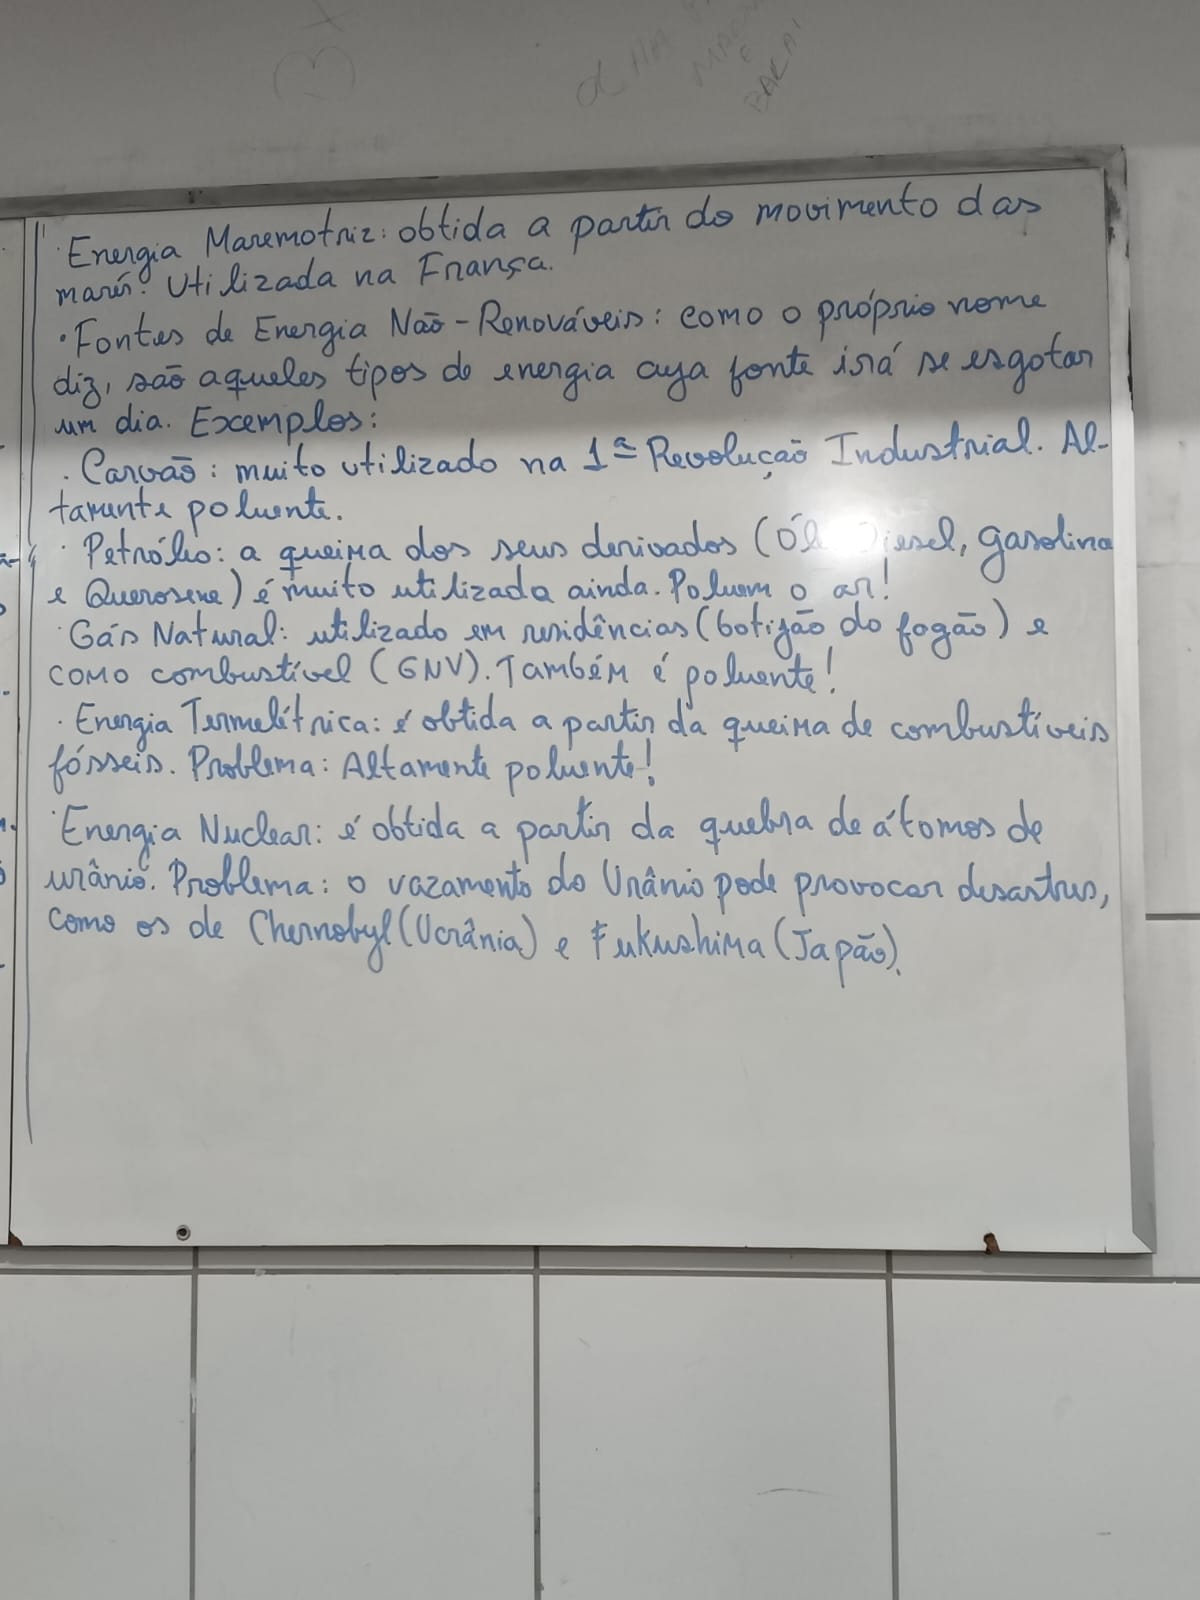 · Energia Maremotriz: obtida a partir do movimento das
marés. Utilizada na França.
· Fontes de Energia Não-Renováveis: como o próprio nome
diz, são aqueles tipos de energia cuja fonte irá se esgotar
um dia. Exemplos:
· Carvão: muito utilizado na 1ª Revolução Industrial. Al-
tamente poluente.
· Petróleo: a queima dos seus derivados (Diesel, gasolina
e Querosene) é muito utilizada ainda. Poluem o ar!
· Gás Natural: utilizado em residências (botijão do fogão) e
como combustível (GNV). Também é poluente!
· Energia Termelétrica: é obtida a partir da queima de combustíveis
fósseis. Problema: Altamente poluente!
· Energia Nuclear: é obtida a partir da quebra de átomos de
urânio. Problema: o vazamento do Urânio pode provocar desastres,
como os de Chernobyl (Ucrânia) e Fukushima (Japão).